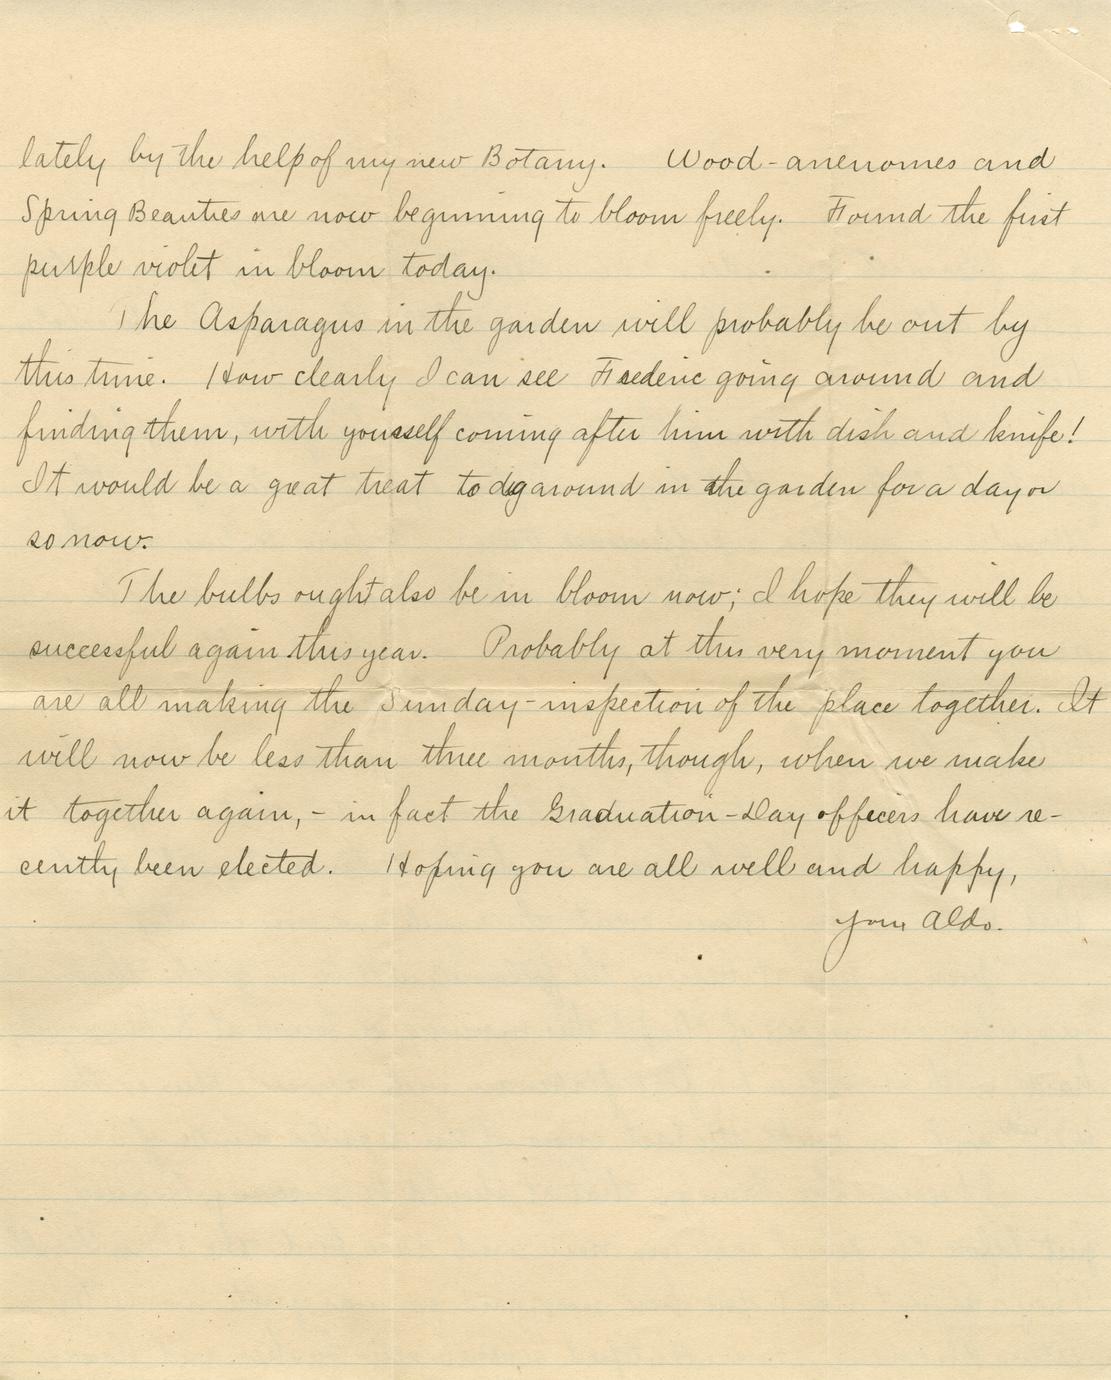 lately by the help of my new Botany. Wood-anenomes and
Spring Beauties are now beginning to bloom freely. Found the first
purple violet in bloom today.
The Asparagus in the garden will probably be out by
this time. How clearly I can see Frederic going around and
finding them, with yourself coming after him with dish and knife!
It would be a great treat to dig around in the garden for a day or
so now.
The bulbs ought also be in bloom now; I hope they will be
successful again this year. Probably at this very moment you
are all making the Sunday-inspection of the place together. It
will now be less than three months, though, when we make
it together again, - in fact the Graduation-Day officers have re-
cently been elected. Hoping you are all well and happy,
Your Aldo.